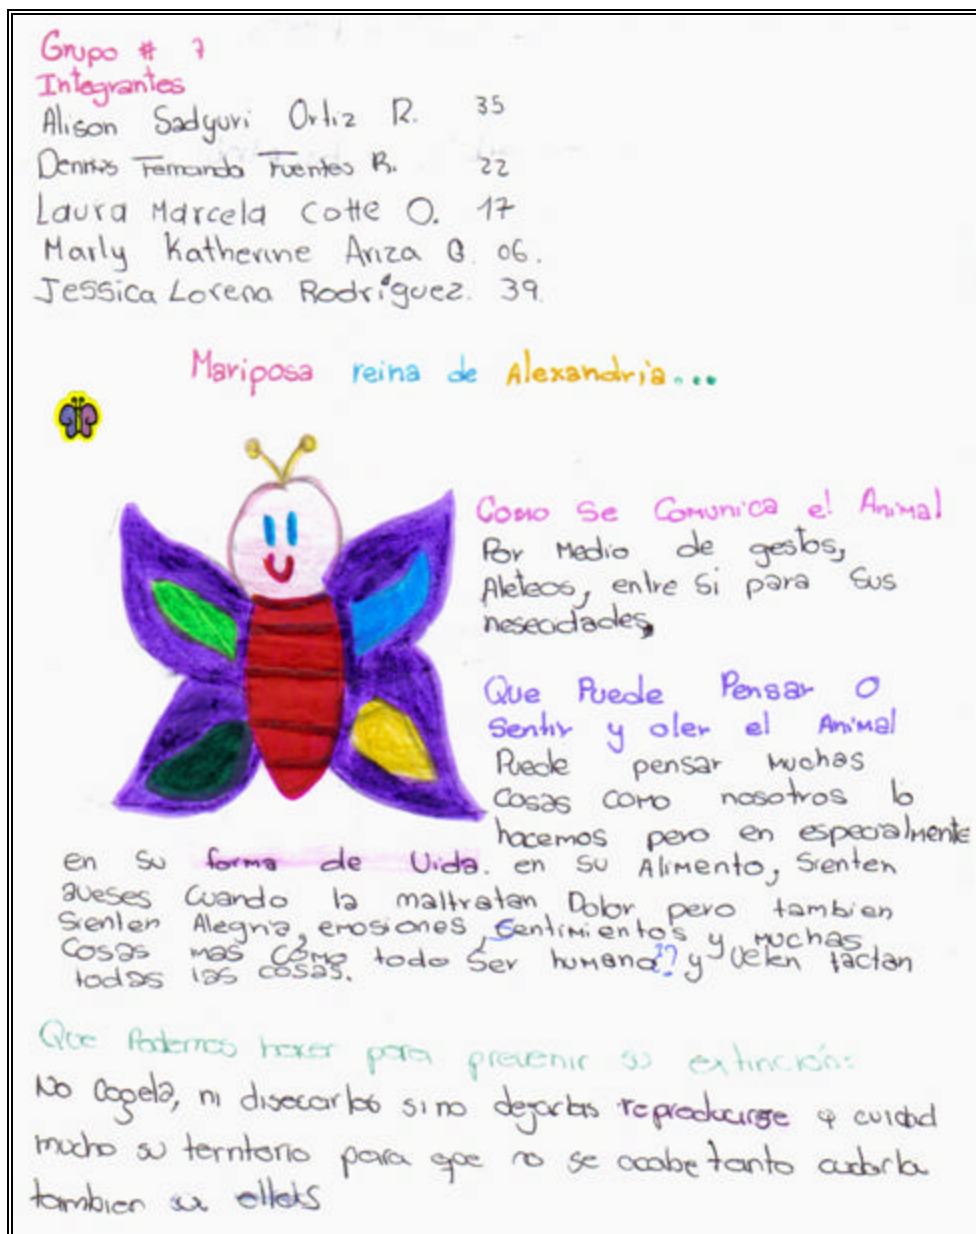 Grupo # 7
Integrantes
Alison Sadyuri Ortiz R. 35
Dennis Fernando Fuentes R. 22
Laura Marcela Cotte O. 17
Marly Katherine Ariza G. 06.
Jessica Lorena Rodríguez. 39.
Mariposa reina de Alexandria...
Como Se Comunica el Animal
Por Medio de gestos,
Aleteos, entre Si para Sus
nesecidades,
Que Puede Pensar O
Sentir y oler el Animal
Puede pensar muchas
Cosas como nosotros lo
hacemos pero en especialmente
en su forma de Vida. en Su Alimento, Sienten
aveses Cuando la maltratan Dolor pero tambien
Sienten Alegria, emosiones, Sentimientos y muchas
Cosas mas Como todo Ser humano?? y Uelen tactan
todas las cosas.
Que Podemos hacer para prevenir su extinción:
No Cogela, ni disecarlos sino dejarlas reproducirse y cuidad
mucho su territorio para que no se acabe tanto cuidarla
tambien